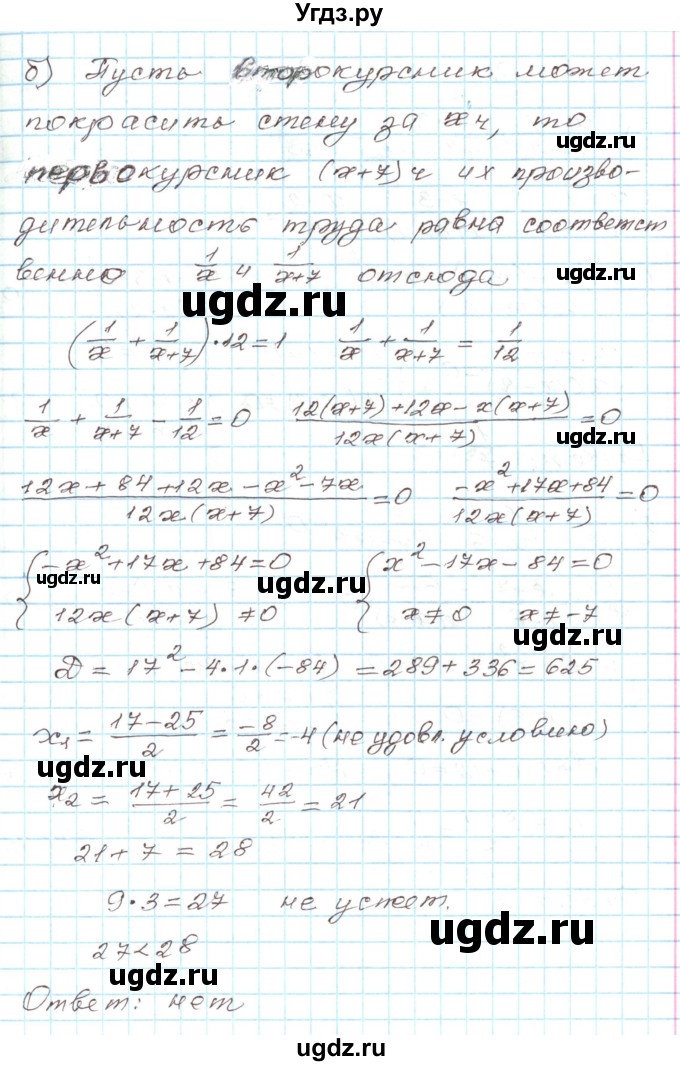 Угдз.ру
б) Пусть второкурсник может
покрасить стену за x ч, то
ugdz.ru
первокурсник (x+7) ч и их произво-
дительность труда равна соответст
венно 1/x и 1/(x+7) отсюда
ugdz.ru
ugdz.ru
(1/x + 1/(x+7))·12=1 1/x + 1/(x+7) = 1/12
1/x + 1/(x+7) - 1/12 = 0 (12(x+7)+12x-x(x+7))/(12x(x+7)) = 0
ugdz.ru
ugdz.ru
(12x+84+12x-x²-7x)/(12x(x+7)) = 0 (-x²+17x+84)/(12x(x+7)) = 0
{-x²+17x+84=0 {x²-17x-84=0
ugdz.ru
ugdz.ru
12x(x+7)≠0 x≠0 x≠-7
ugdz.ru
D = 17²-4·1·(-84) = 289+336=625
x₁ = (17-25)/2 = -8/2 = -4 (не удовл. условию)
ugdz.ru
x₂ = (17+25)/2 = 42/2 = 21
ugdz.ru
21+7=28
9·3=27 не успеет.
ugdz.ru
27<28
ugdz.ru
Ответ: нет
ugdz.ru